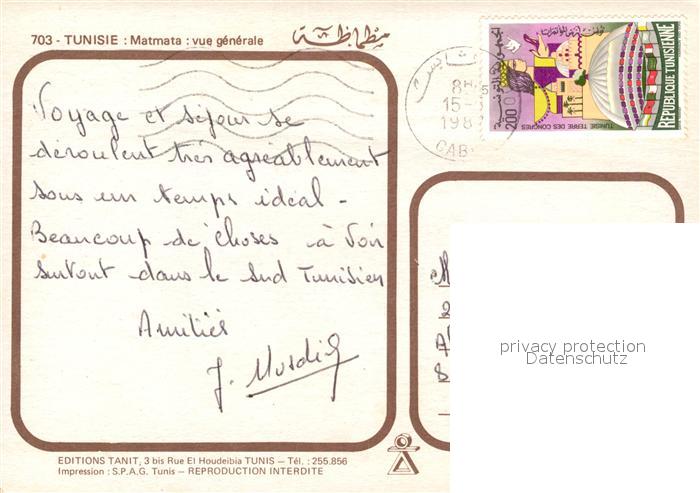 703 - TUNISIE : Matmata : vue générale مطماطة
Voyage et séjour se
déroulent très agréablement
sous un temps idéal -
Beaucoup de choses à voir
surtout dans le sud Tunisien
Amitiés
J.
8H
15-
198
GAB
الجمهورية التونسية
200
TUNISIE TERRE DES CONGRES
REPUBLIQUE TUNISIENNE
privacy protection
Datenschutz
EDITIONS TANIT, 3 bis Rue El Houdeibia TUNIS - Tél. : 255.856
Impression : S.P.A.G. Tunis - REPRODUCTION INTERDITE